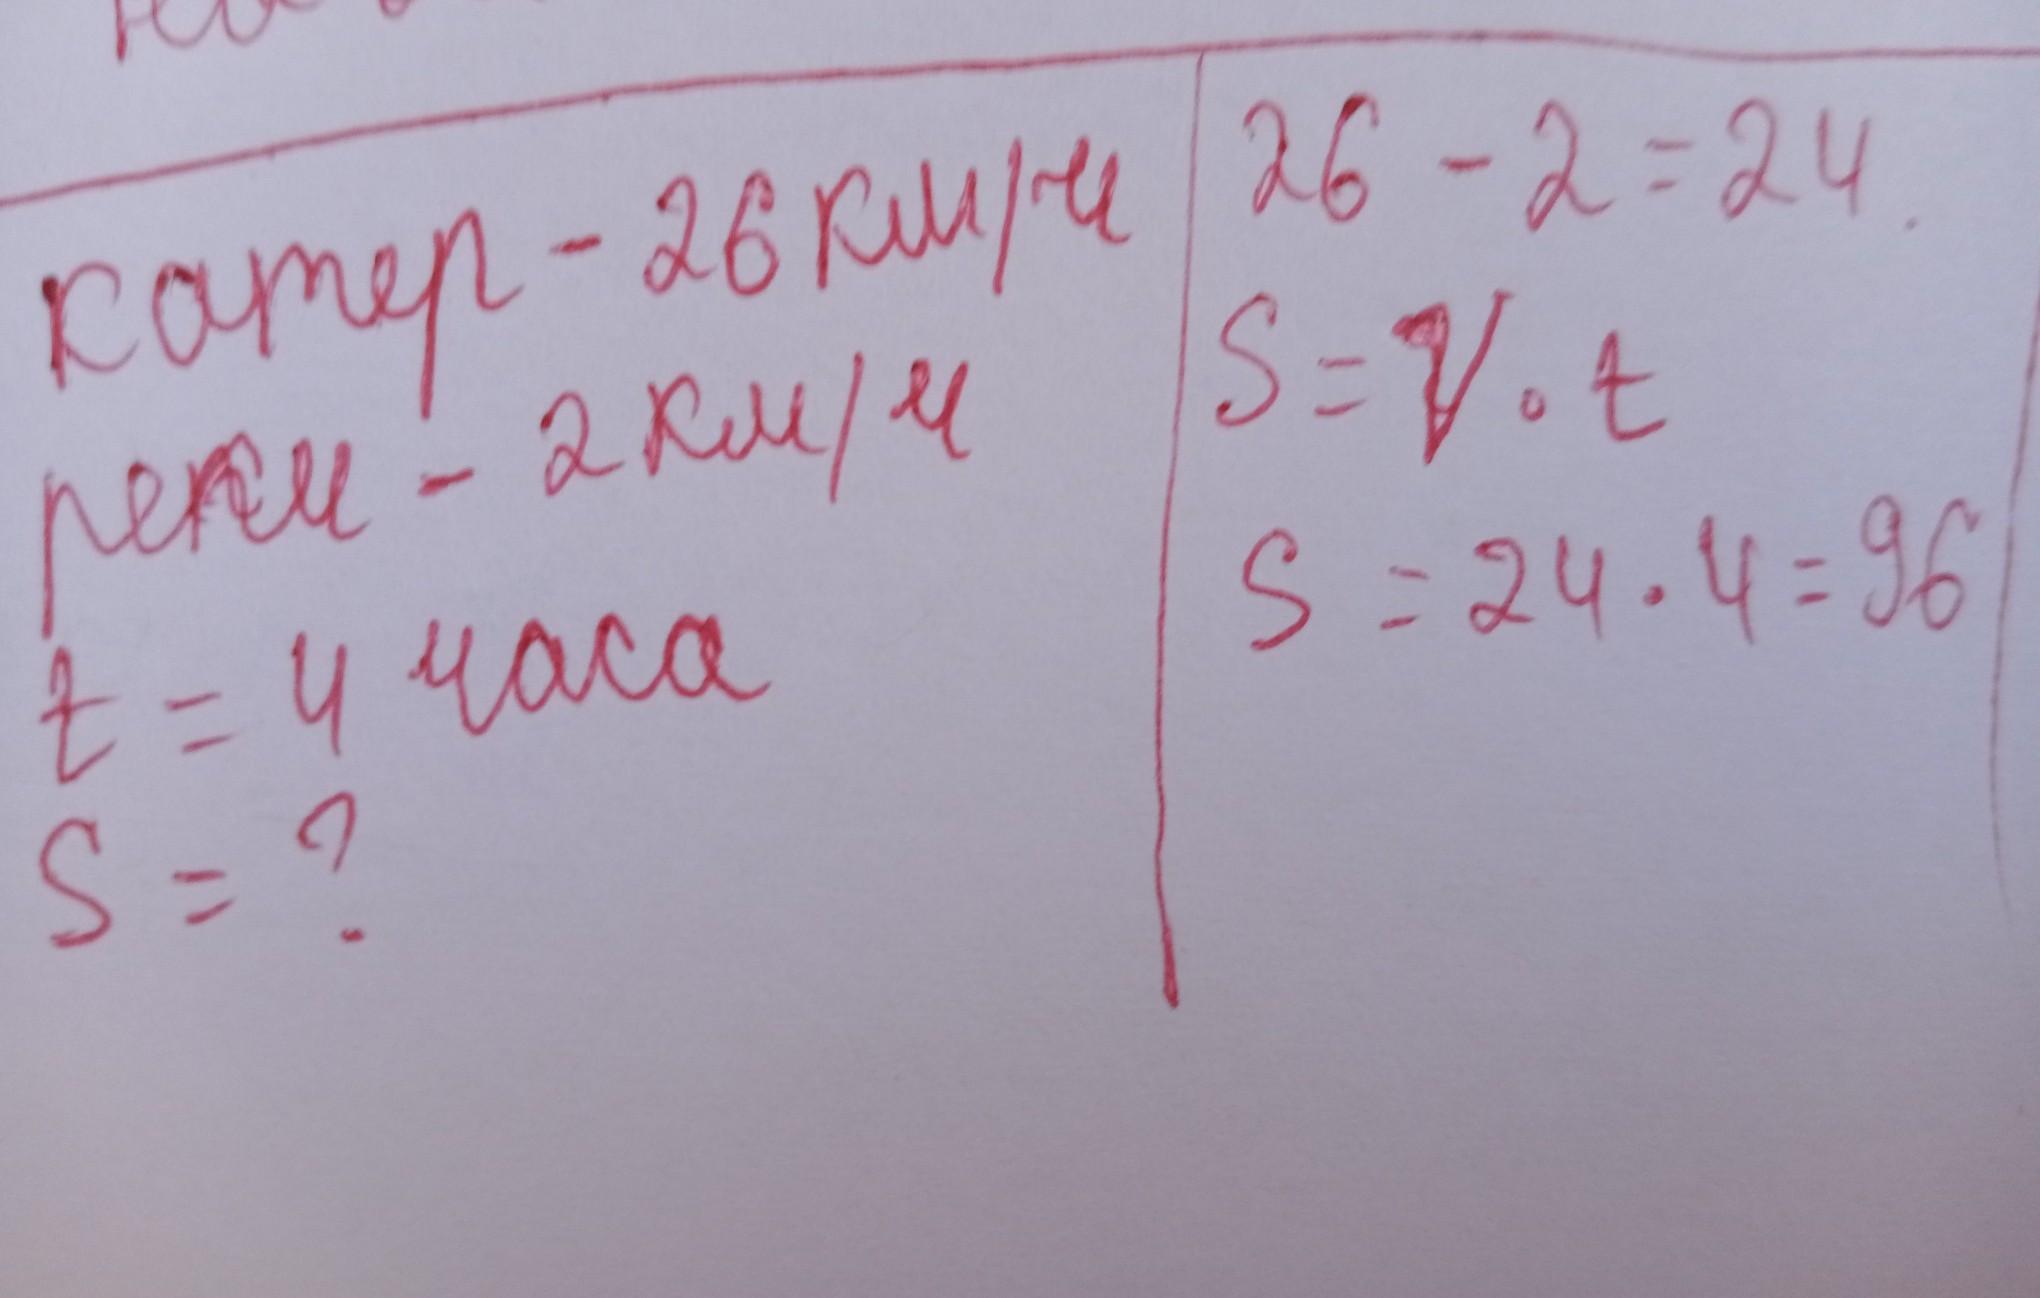 катер - 26 км/ч
реки - 2 км/ч
t = 4 часа
S = ?
26 - 2 = 24.
S = V · t
S = 24 · 4 = 96